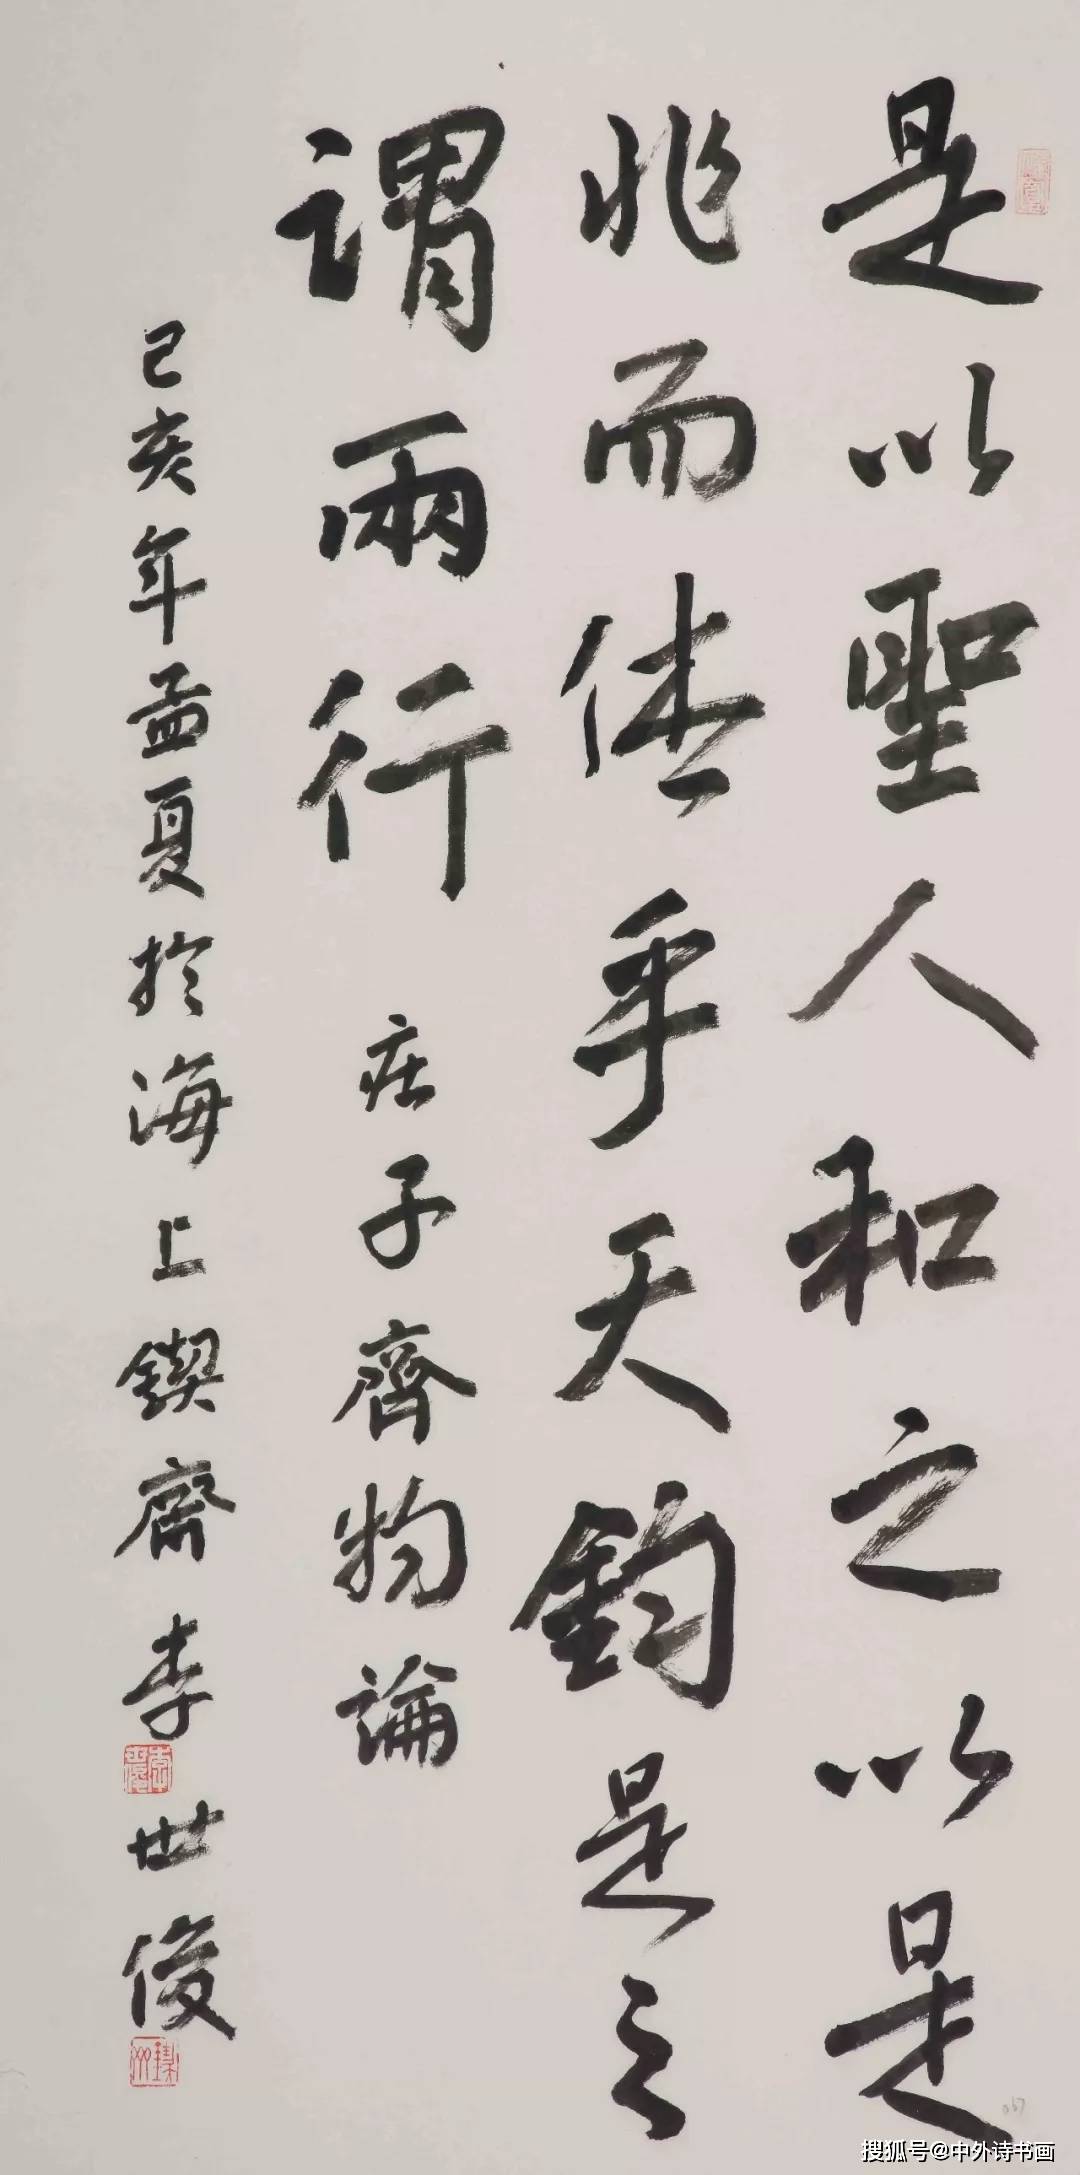 是以聖人和之以是
非而休乎天鈞是之
謂兩行 庄子齊物論
己亥年孟夏於海上鍥齋李世俊
067
搜狐号@中外诗书画